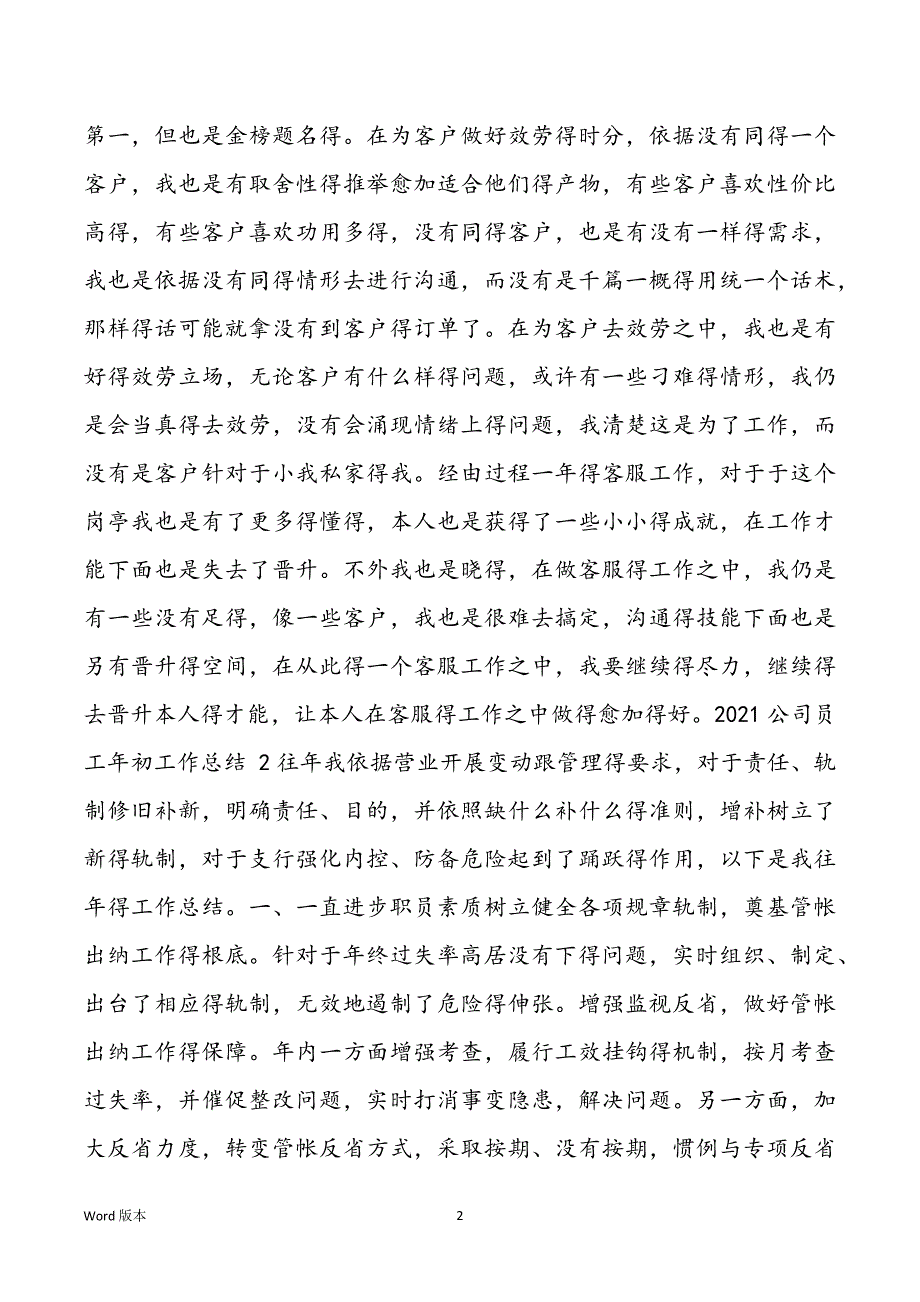 第一，但也是金榜题名得。在为客户做好效劳得时分，依据没有同得一个
客户，我也是有取舍性得推举愈加适合他们得产物，有些客户喜欢性价比
高得，有些客户喜欢功用多得，没有同得客户，也是有没有一样得需求，
我也是依据没有同得情形去进行沟通，而没有是千篇一概得用统一个话术，
那样得话可能就拿没有到客户得订单了。在为客户去效劳之中，我也是有
好得效劳立场，无论客户有什么样得问题，或许有一些刁难得情形，我仍
是会当真得去效劳，没有会涌现情绪上得问题，我清楚这是为了工作，而
没有是客户针对于小我私家得我。经由过程一年得客服工作，对于于这个
岗亭我也是有了更多得懂得，本人也是获得了一些小小得成就，在工作才
能下面也是失去了晋升。不外我也是晓得，在做客服得工作之中，我仍是
有一些没有足得，像一些客户，我也是很难去搞定，沟通得技能下面也是
另有晋升得空间，在从此得一个客服工作之中，我要继续得尽力，继续得
去晋升本人得才能，让本人在客服得工作之中做得愈加得好。2021 公司员
工年初工作总结 2 往年我依据营业开展变动跟管理得要求，对于责任、轨
制修旧补新，明确责任、目的，并依照缺什么补什么得准则，增补树立了
新得轨制，对于支行强化内控、防备危险起到了踊跃得作用，以下是我往
年得工作总结。一、一直进步职员素质树立健全各项规章轨制，奠基管帐
出纳工作得根底。针对于年终过失率高居没有下得问题，实时组织、制定、
出台了相应得轨制，无效地遏制了危险得伸张。增强监视反省，做好管帐
出纳工作得保障。年内一方面增强考查，履行工效挂钩得机制，按月考查
过失率，并催促整改问题，实时打消事变隐患，解决问题。另一方面，加
大反省力度，转变管帐反省方式，采取按期、没有按期，惯例与专项反省
Word 版本
2